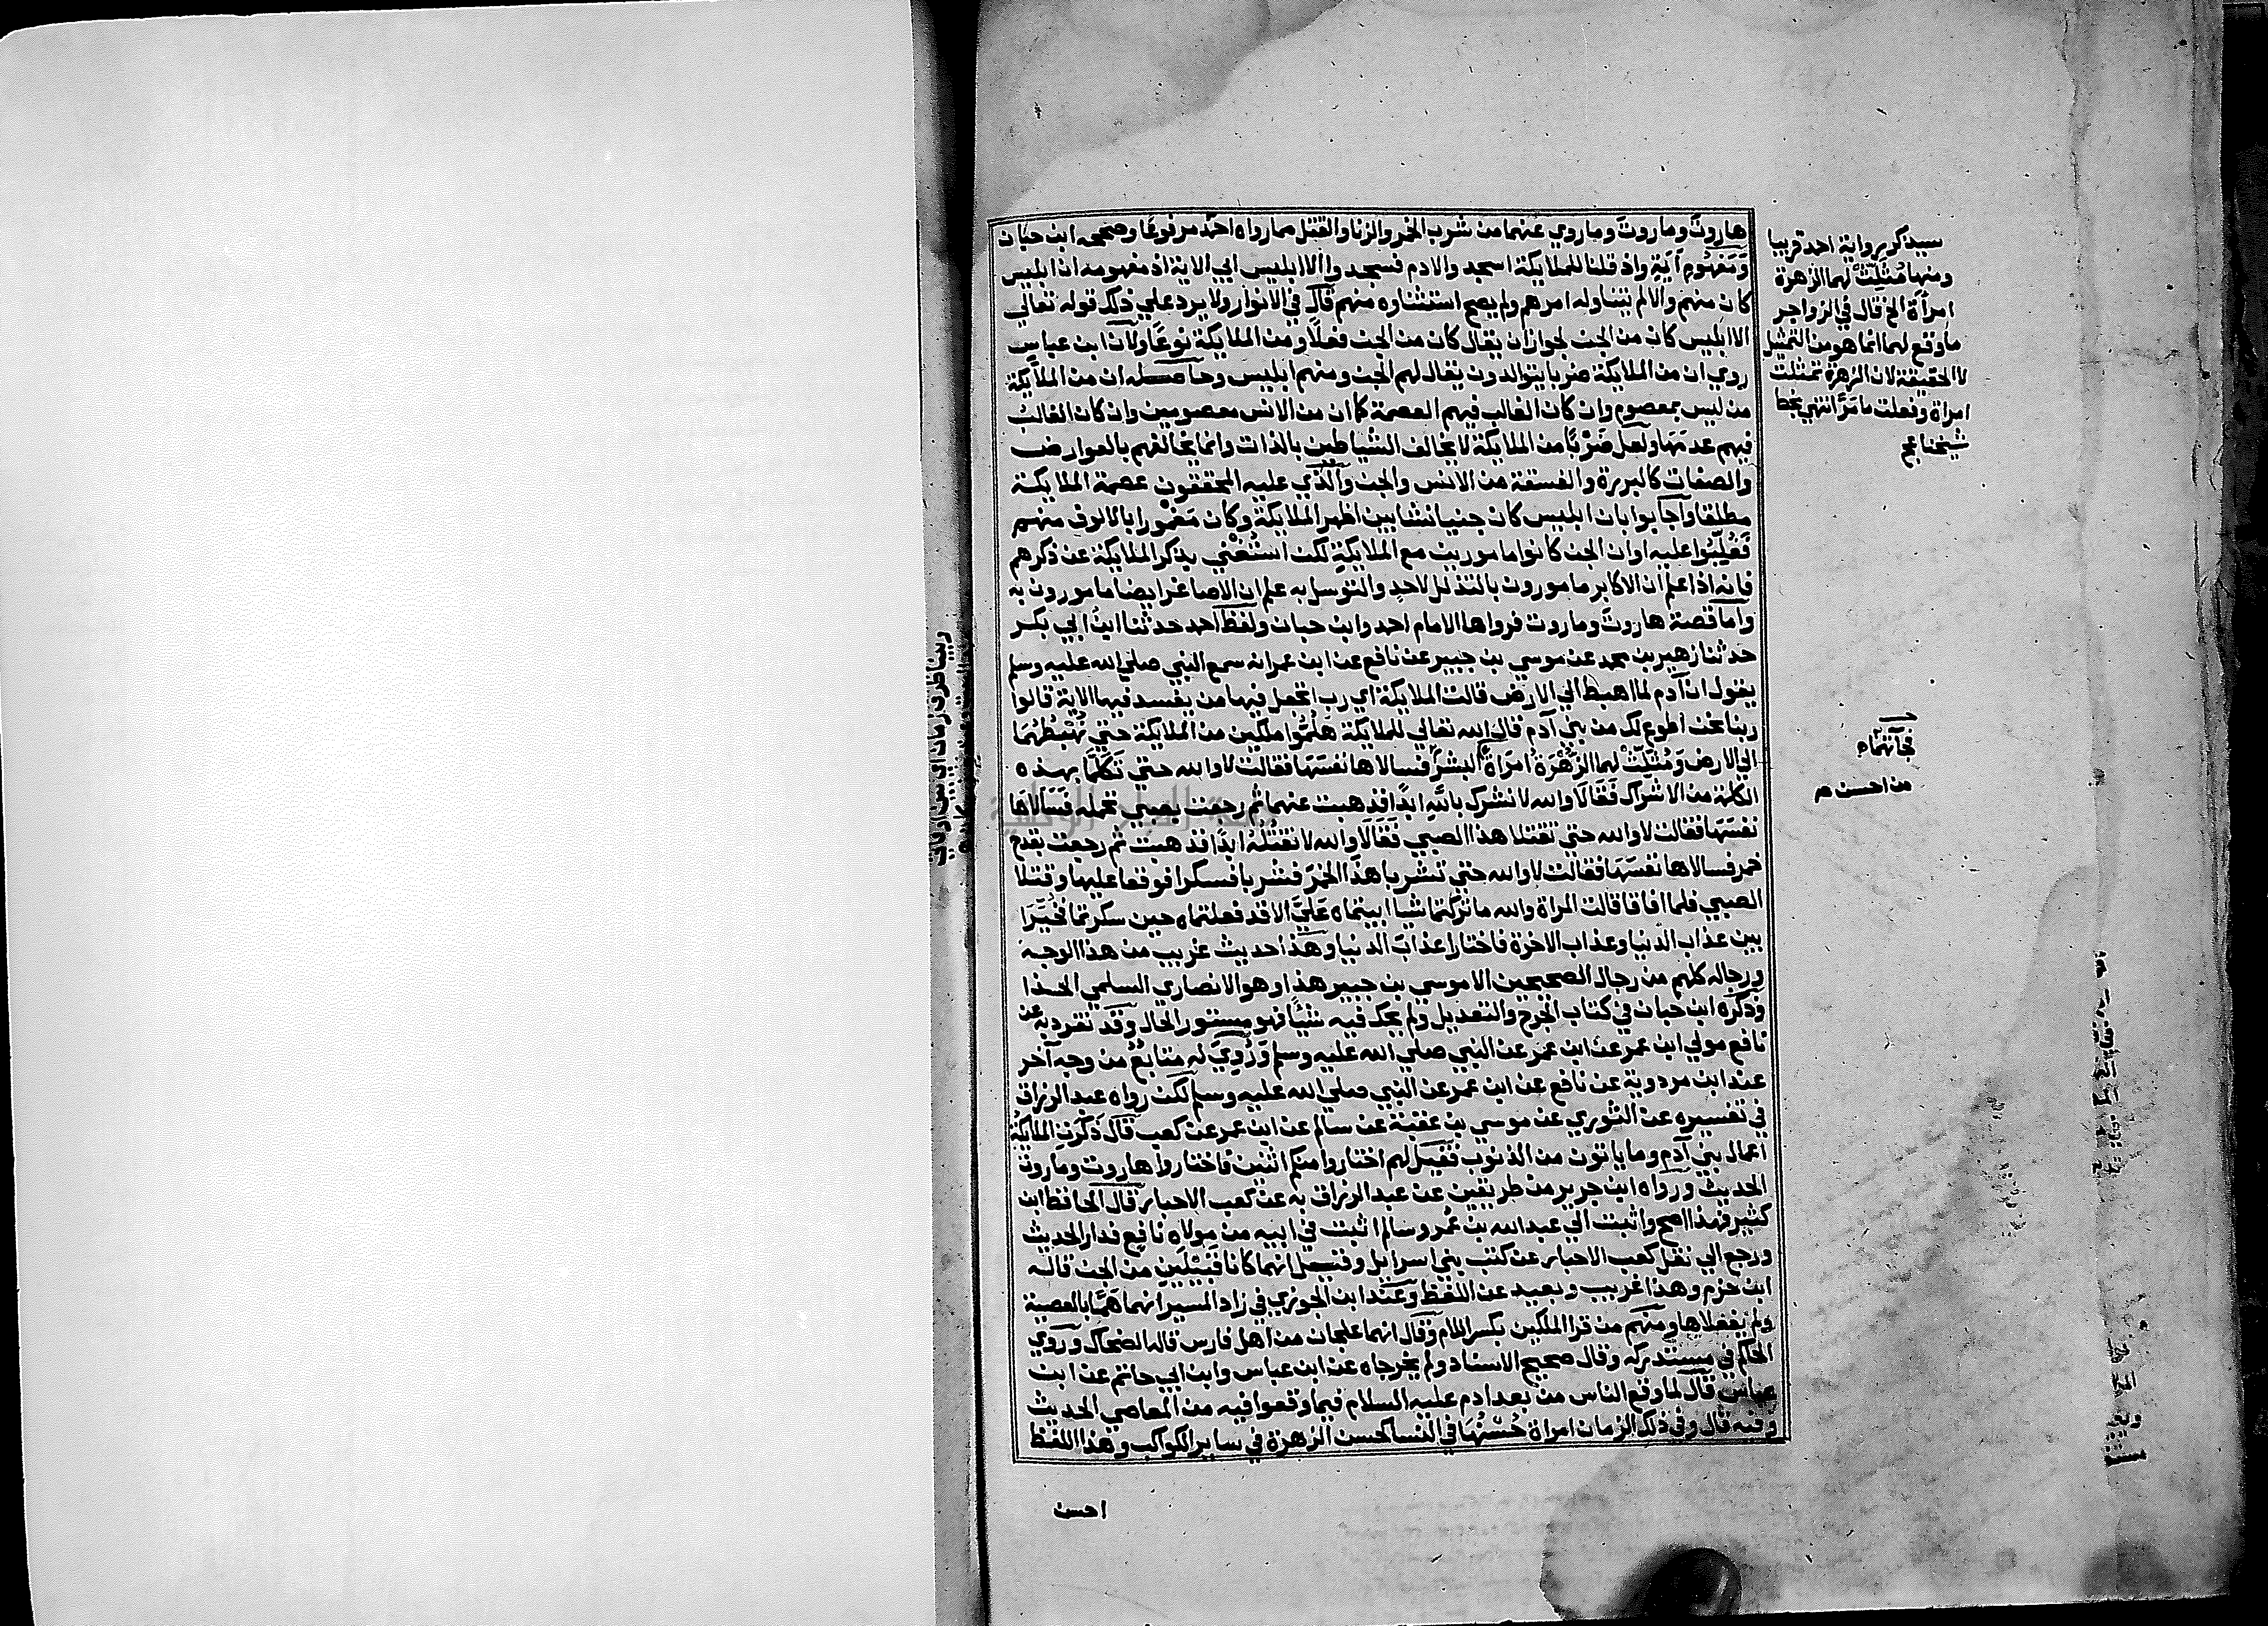 هاروت وماروت وما روي عنهما من شرب الخمر والزنا والقتل مما رواه احمد مرفوعا وصححه ابن حبان
ومفهوم آية واذ قلنا للملايكة اسجدوا لادم فسجدوا الا ابليس ابي الاية اذ مفهومه ان ابليس
كان منهم والا لم يتناوله امرهم ولم يصح استثناره منهم قال في الانوار ولا يرد علي ذلك قوله تعالي
الا ابليس كان من الجن لجواز ان يقال كان من الجن فعلا ومن الملايكة نوعا ولان ابن عباس
روي ان من الملايكة ضربا يتوالدون يقال لهم الجن ومنهم ابليس وحاصله ان من الملايكة
من ليس بمعصوم وان كان الغالب فيهم العصمة كما ان من الانس معصومين وان كان الغالب
فيهم عدمها ولعل ضربا من الملايكة لا يخالف الشياطين بالذات وانما يخالفهم بالعوارض
والصفات كالبررة والفسقة من الانس والجن والذي عليه المحققون عصمة الملايكة
مطلقا واجابوا بان ابليس كان جنيا نشا بين اظهر الملايكة وكان مغمورا بالالوف منهم
فغلبوا عليه او ان الجن كانوا مامورين مع الملايكة لكن استغني بذكر الملايكة عن ذكرهم
فانه اذا علم ان الاكابر مامورون بالتذلل لاحد والتوسل به علم ان الاصاغر ايضا مامورون به
واما قصة هاروت وماروت فرواها الامام احمد وابن حبان ولفظ احمد حدثنا ابن ابي بكر
حدثنا زهير بن محمد عن موسي بن جبير عن نافع عن ابن عمر انه سمع النبي صلي الله عليه وسلم
يقول ان آدم لما اهبط الي الارض قالت الملايكة اي رب اتجعل فيها من يفسد فيها الاية قالوا
ربنا نحن اطوع لك من بني آدم قال الله تعالي للملايكة هلموا ملكين من الملايكة حتي نهبطهما
الي الارض ومثلت لهما الزهرة امراة البشر فسالاها نفسها فقالت لا والله حتي تكلما بهذه
الكلمة من الاشراك فقالا والله لا نشرك بالله ابدا فذهبت عنهما ثم رجعت بصبي تحمله فسالاها
نفسها فقالت لا والله حتي تقتلا هذا الصبي فقالا والله لا نقتله ابدا فذهبت ثم رجعت بقدح
خمر فسالاها نفسها فقالت لا والله حتي تشربا هذا الخمر فشربا فسكرا فوقعا عليها وقتلا
الصبي فلما افاقا قالت المراة والله ما تركتما شيا ابيتماه علي الا قد فعلتماه حين سكرتما فخيرا
بين عذاب الدنيا وعذاب الاخرة فاختارا عذاب الدنيا وهذا حديث غريب من هذا الوجه
ورجاله كلهم من رجال الصحيحين الا موسي بن جبير هذا وهو الانصاري السلمي الحذا
وذكره ابن حبان في كتاب الجرح والتعديل ولم يحك فيه شيئا فهو مستور الحال وقد تفرد به عن
نافع مولي ابن عمر عن ابن عمر عن النبي صلي الله عليه وسلم وروي له متابع من وجه آخر
عند ابن مردوية عن نافع عن ابن عمر عن النبي صلي الله عليه وسلم لكن رواه عبد الرزاق
في تفسيره عن الثوري عن موسي بن عقبة عن سالم عن ابن عمر عن كعب قال ذكرت الملايكة
اعمال بني آدم وما ياتون من الذنوب فقيل لهم اختاروا منكم اثنين فاختاروا هاروت وماروت
الحديث ورواه ابن جرير من طريقين عن عبد الرزاق به عن كعب الاحبار قال الحافظ ابن
كثير فهذا اصح واثبت الي عبد الله بن عمر وسالم اثبت في ابيه من مولاه نافع فدار الحديث
ورجع الي نقل كعب الاحبار عن كتب بني اسرائل وقيل انهما كانا قبيلين من الجن قاله
ابن حزم وهذا غريب وبعيد عن اللفظ وعند ابن الجوزي في زاد المسير انهما هما بالمعصية
ولم يفعلاها ومنهم من قرا الملكين بكسر اللام وقال انهما علجان من اهل فارس قاله الضحاك وروي
الحاكم في مستدركه وقال صحيح الاسناد ولم يخرجاه عن ابن عباس وابن ابي حاتم عن ابن
عباس قال لما وقع الناس من بعد ادم عليه السلام فيما وقعوا فيه من المعاصي الحديث
وفيه قال وفي ذلك الزمان امراة حسنها في النسا كحسن الزهرة في ساير الكواكب وهذا اللفظ
احسن
سيذكر رواية احمد قريبا
ومنها مثلت لهما الزهرة
امرأة الخ قال في الزواجر
ما وقع لهما انما هو من التمثيل
لا الحقيقة لان الزهرة تمثلت
امراة وفعلت ما مر انتهي بخط
شيخنا عج
فجآتهماه
من احسن م